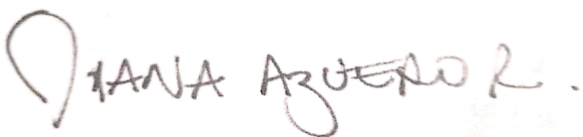 Diana Azuero R.